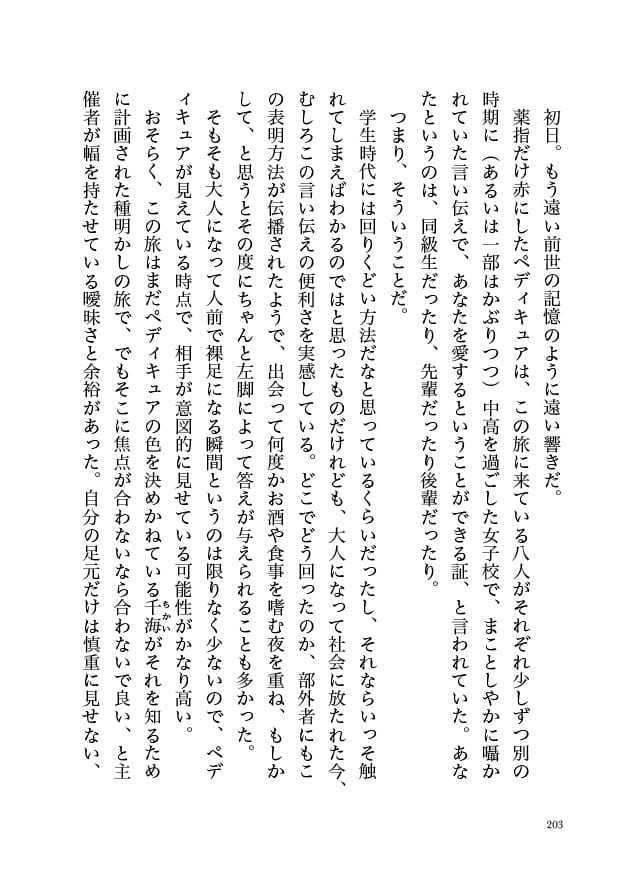 初日。もう遠い前世の記憶のように遠い響きだ。
薬指だけ赤にしたペディキュアは、この旅に来ている八人がそれぞれ少しずつ別の
時期に（あるいは一部はかぶりつつ）中高を過ごした女子校で、まことしやかに囁か
れていた言い伝えで、あなたを愛するということができる証、と言われていた。あな
たというのは、同級生だったり、先輩だったり後輩だったり。
つまり、そういうことだ。
学生時代には回りくどい方法だなと思っているくらいだったし、それならいっそ触
れてしまえばわかるのではと思ったものだけれども、大人になって社会に放たれた今、
むしろこの言い伝えの便利さを実感している。どこでどう回ったのか、部外者にもこ
の表明方法が伝播されたようで、出会って何度かお酒や食事を嗜む夜を重ね、もしか
して、と思うとその度にちゃんと左脚によって答えが与えられることも多かった。
そもそも大人になって人前で裸足になる瞬間というのは限りなく少ないので、ペデ
ィキュアが見えている時点で、相手が意図的に見せている可能性がかなり高い。
おそらく、この旅はまだペディキュアの色を決めかねている千海がそれを知るため
ちかい
に計画された種明かしの旅で、でもそこに焦点が合わないなら合わないで良い、と主
催者が幅を持たせている曖昧さと余裕があった。自分の足元だけは慎重に見せない、
203